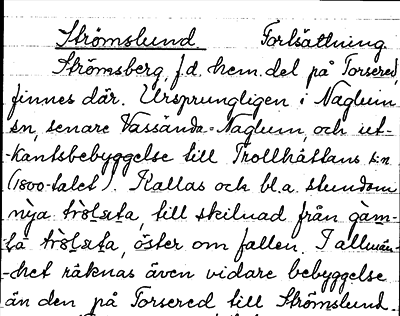 Strömslund Fortsättning
Strömsberg, f.d. hem.del på Torsered,
finnes där. Ursprungligen i Naglum
sn, senare Vassända-Naglum, och ut-
-kantsbebyggelse till Trollhättans sn
(1800-talet). Kallas och bl.a. stundom
till skilnad från
öster om fallen. I allmän-
-het räknas även vidare bebyggelse
än den på Torsered till Strömslund.